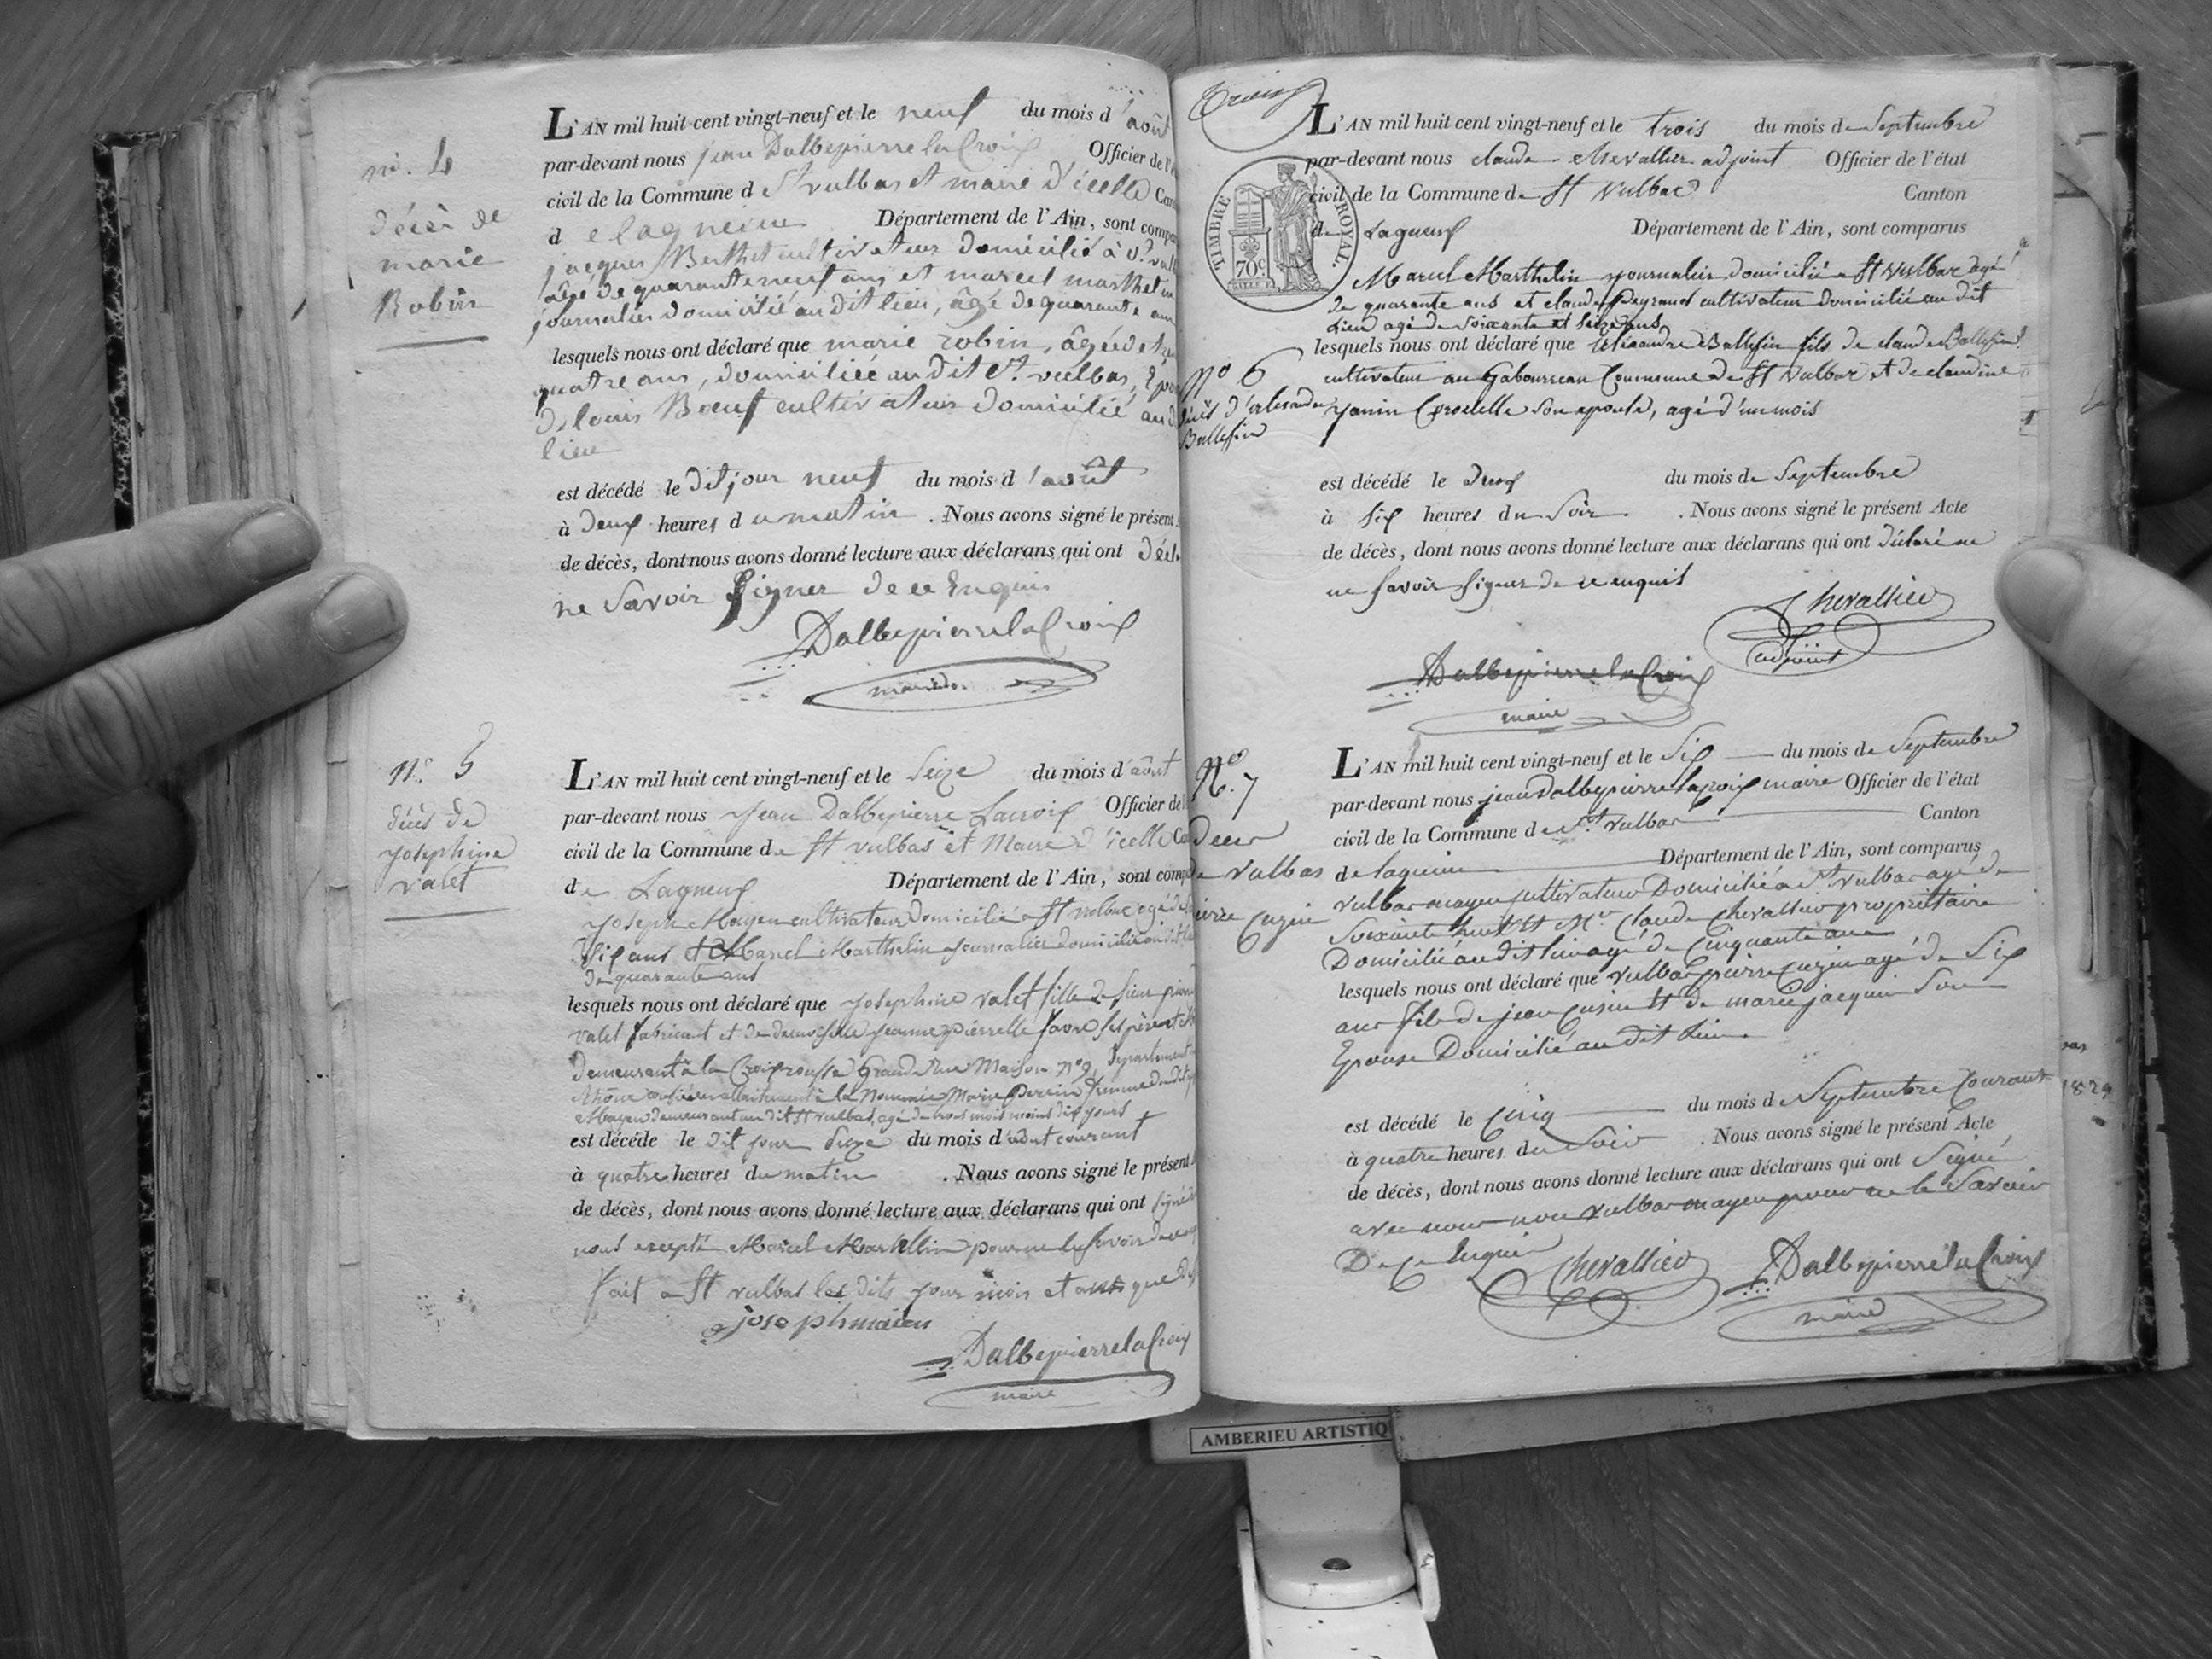 n°. 4
décès de
marie
Robin
L'AN mil huit cent vingt-neuf et le neuf du mois d'août
par-devant nous jean Dalbepierre la Croix Officier de l'é
civil de la Commune de St vulbas et maire d'icelle Can
d e lagneiue Département de l'Ain, sont compa
jacques Berthet cultivateur domicilié à St. vulb
âgé de quarante neuf ans et marcel marthelin
journalier domicilié au dit lieu, âgé de quarante ans
lesquels nous ont déclaré que marie robin, âgée de
quatre ans, domiciliée au dit St. vulbas, Epou
de louis Bœuf cultivateur domicilié au d
lieu
est décédé le dit jour neuf du mois d'août
à deux heures du matin . Nous avons signé le présent
de décès, dont nous avons donné lecture aux déclarans qui ont décl
ne Savoir Signer de ce Enquis
Dalbepierre la Croix
maire
n°. 5
décès de
Josephine
valet
L'AN mil huit cent vingt-neuf et le Seize du mois d'août
par-devant nous Jean Dalbepierre Lacroix Officier de l
civil de la Commune de St vulbas et Maire d'icelle Ca
de Lagneux Département de l'Ain, sont compa
Joseph Mayen cultivateur domicilié a St vulbas agé de
Six ans et Marcel Marthelin Journalier domicilié au dit
de quarante ans
lesquels nous ont déclaré que Josephine valet fille de Sieur pierre
valet fabricant et de demoiselle Jeanne pierrette favre ses père et
demeurant à la Croix rousse Grande Rue Maison n° 9, département
Rhône allaitement à la nommée Marie Perrin femme du dit
Mayen demeurant au dit St vulbas, agé de trois mois moins dix jours
est décédé le dit jour Seize du mois d'août courant
à quatre heures du matin . Nous avons signé le présent
de décès, dont nous avons donné lecture aux déclarans qui ont signé
nous excepté Marcel Marthelin pour ne le savoir de ce
fait a St vulbas les dits jour mois et an que
joseph maien
Dalbepierre la Croix
maire
Trois
TIMBRE ROYAL
70c.
L'AN mil huit cent vingt-neuf et le trois du mois de Septembre
par-devant nous claude Chevallier adjoint Officier de l'état
civil de la Commune de St Vulbas Canton
de Lagneux Département de l'Ain, sont comparus
Marcel Marthelin journalier domicilié a St Vulbas agé
de quarante ans et claude Peyraud cultivateur domicilié au dit
Lieu agé de soixante et seize ans
lesquels nous ont déclaré que Alexandre Ballefin fils de claude Ballefin
cultivateur au Gabourreau Commune de St Vulbas et de claudine
Janin Croselle son epouse, agé d'un mois
N° 6
décès d'alexandre
Ballefin
est décédé le deux du mois de Septembre
à Six heures du Soir . Nous avons signé le présent Acte
de décès, dont nous avons donné lecture aux déclarans qui ont déclaré ne
ne savoir signer de ce enquis
Chevallier
adjoint
Dalbepierre la Croix
maire
N°. 7
Deces
de Vulbas
pierre Cuzin
L'AN mil huit cent vingt-neuf et le Six du mois de Septembre
par-devant nous jean Dalbepierre lacroix maire Officier de l'état
civil de la Commune de St. Vulbas Canton
de lagnieu Département de l'Ain, sont comparus
vulbas mayen Cultivateur Domicilié a St. vulbas agé de
Soixante huit et Mr. Claude Chevallier propriétaire
Domicilié au dit lieu agé de Cinquante ans
lesquels nous ont déclaré que vulbas pierre Cuzin agé de Six
ans fils de jean Cuzin et de marie jacquin Son
Epouse Domicilié au dit lieu
est décédé le cinq du mois de Septembre Courant
à quatre heures du Soir . Nous avons signé le présent Acte
de décès, dont nous avons donné lecture aux déclarans qui ont Signé
avec nous non vulbas mayen pour ne le Savoir
De ce Enquis
Chevallier
Dalbepierre la Croix
maire
1829
AMBERIEU ARTISTIQ